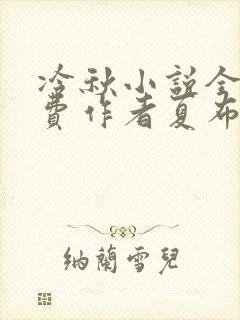 冷秋小説全
費作者夏布
納蘭雪兒